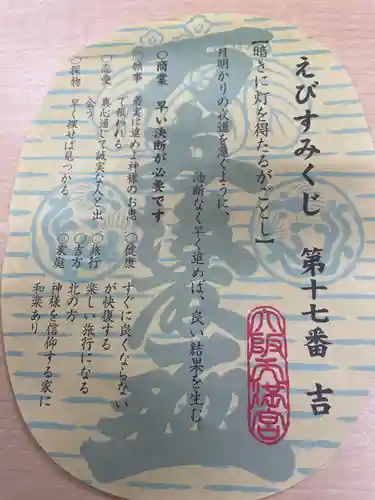 えびすみくじ 第十七番 吉
【暗きに灯を得たるがごとし】
月明かりの夜道を急ぐように、
油断なく早く進めば、良い結果を生む。
〇商業 早い決断が必要です
〇願事 着実に進めよ神様のお恵
で報われる
〇恋愛 真心通じて誠実な人と出
会う
〇探物 早く探せば見つかる
〇健康 すぐに良くならない
が快復する
〇旅行 楽しい旅行になる
〇吉方 北の方
〇家庭 神様を信仰する家に
和楽あり
大阪天満宮